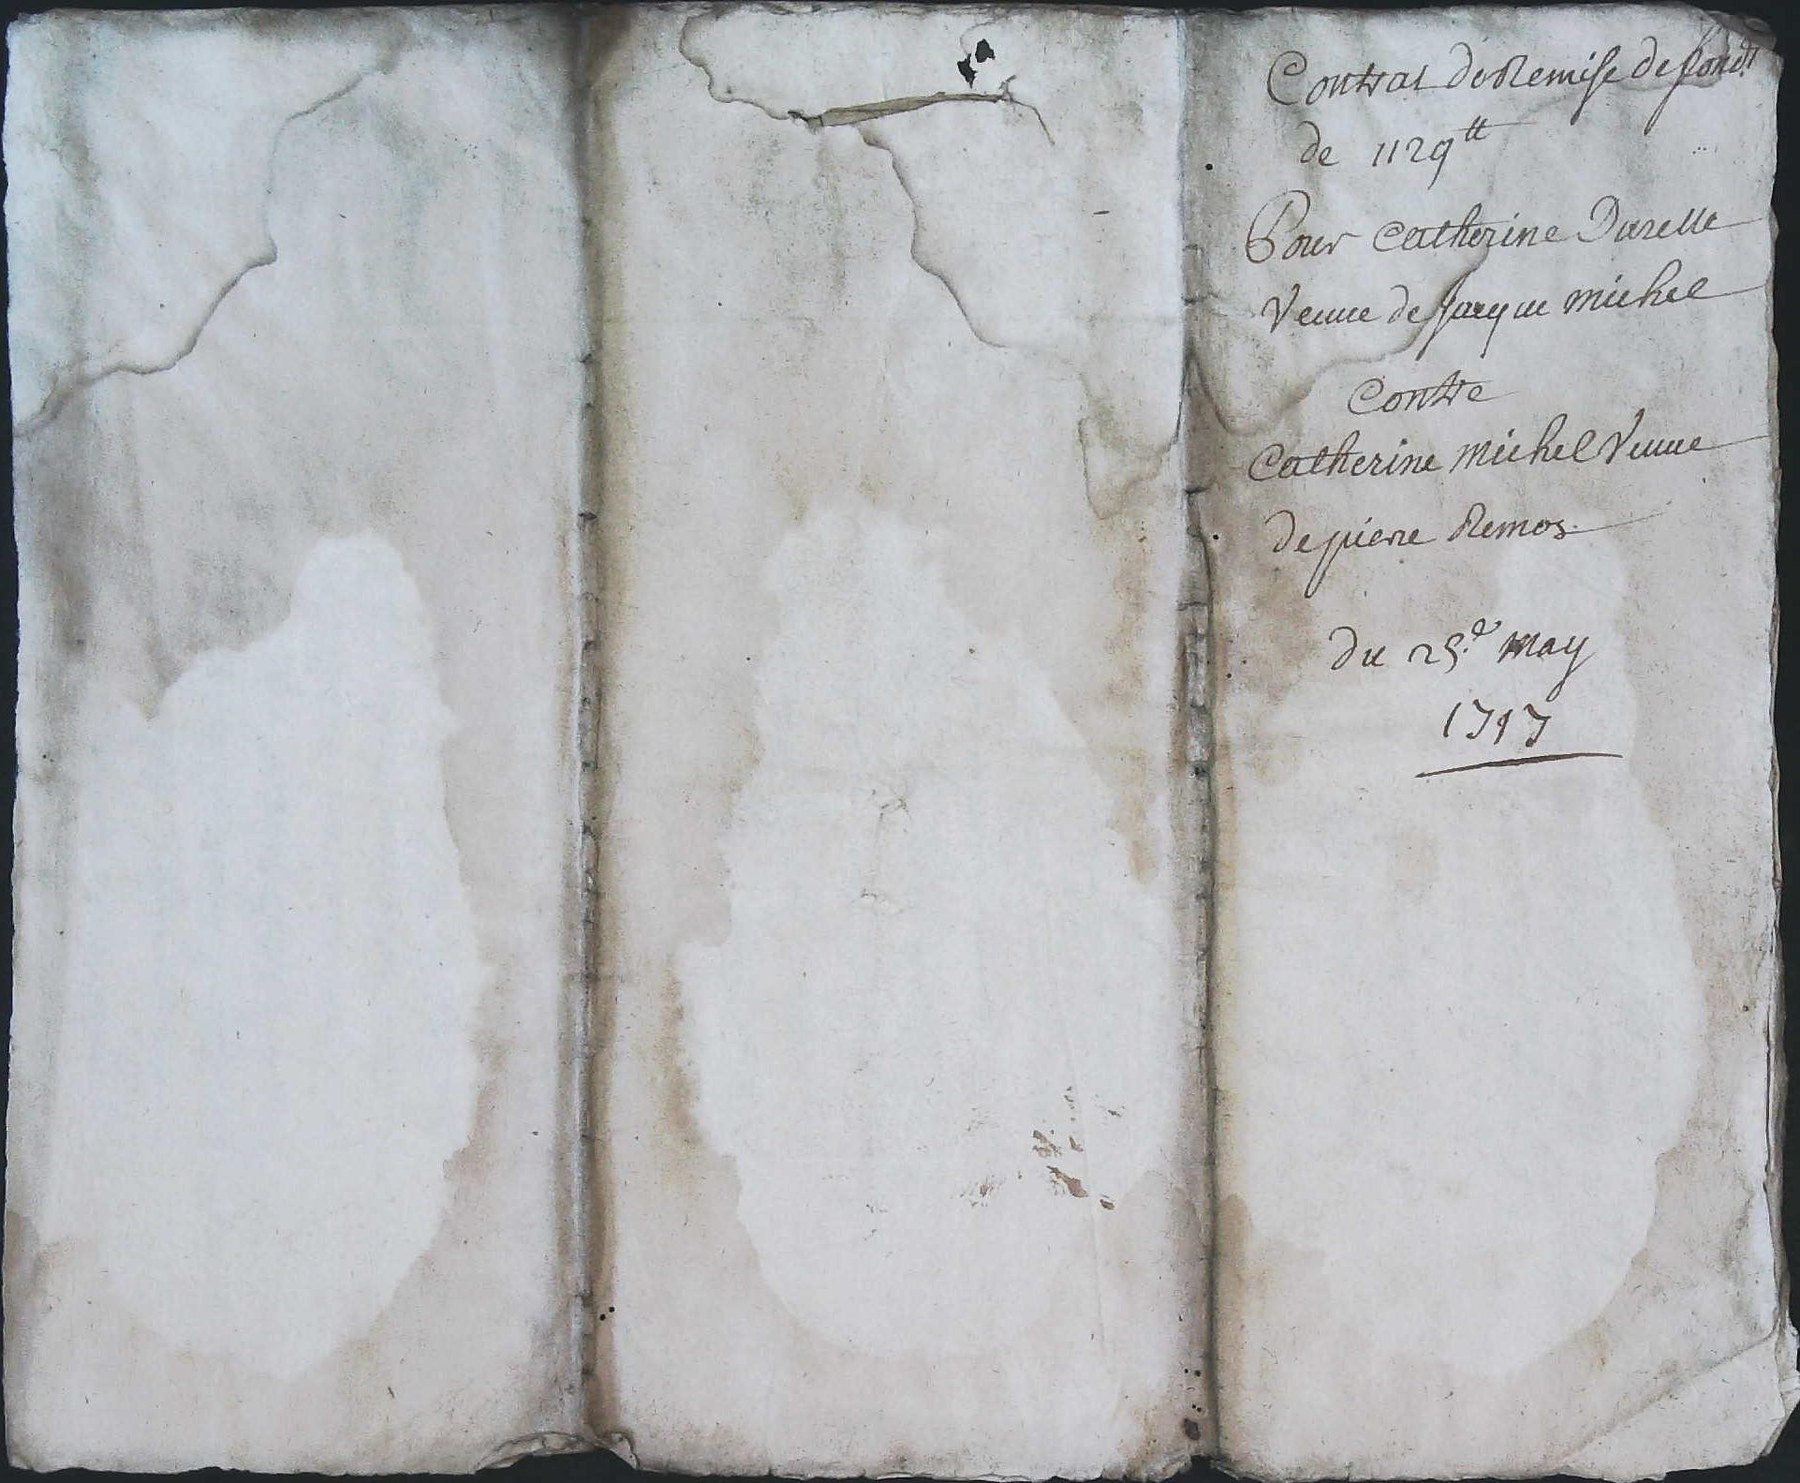 Contrat de Remise de fonds
de 1129 tt
Pour Catherine Durelle
Veuue de Jacque Michel
Contre
Catherine Michel Veuue
de pierre Remos
du 25.e May
1717